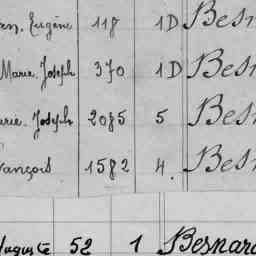 Eugène 118 1D Besn
Marie, Joseph 370 1D Bes
Joseph 2085 5 Bes
rançois 1582 4. Bes
uguste 52 1 Besnard